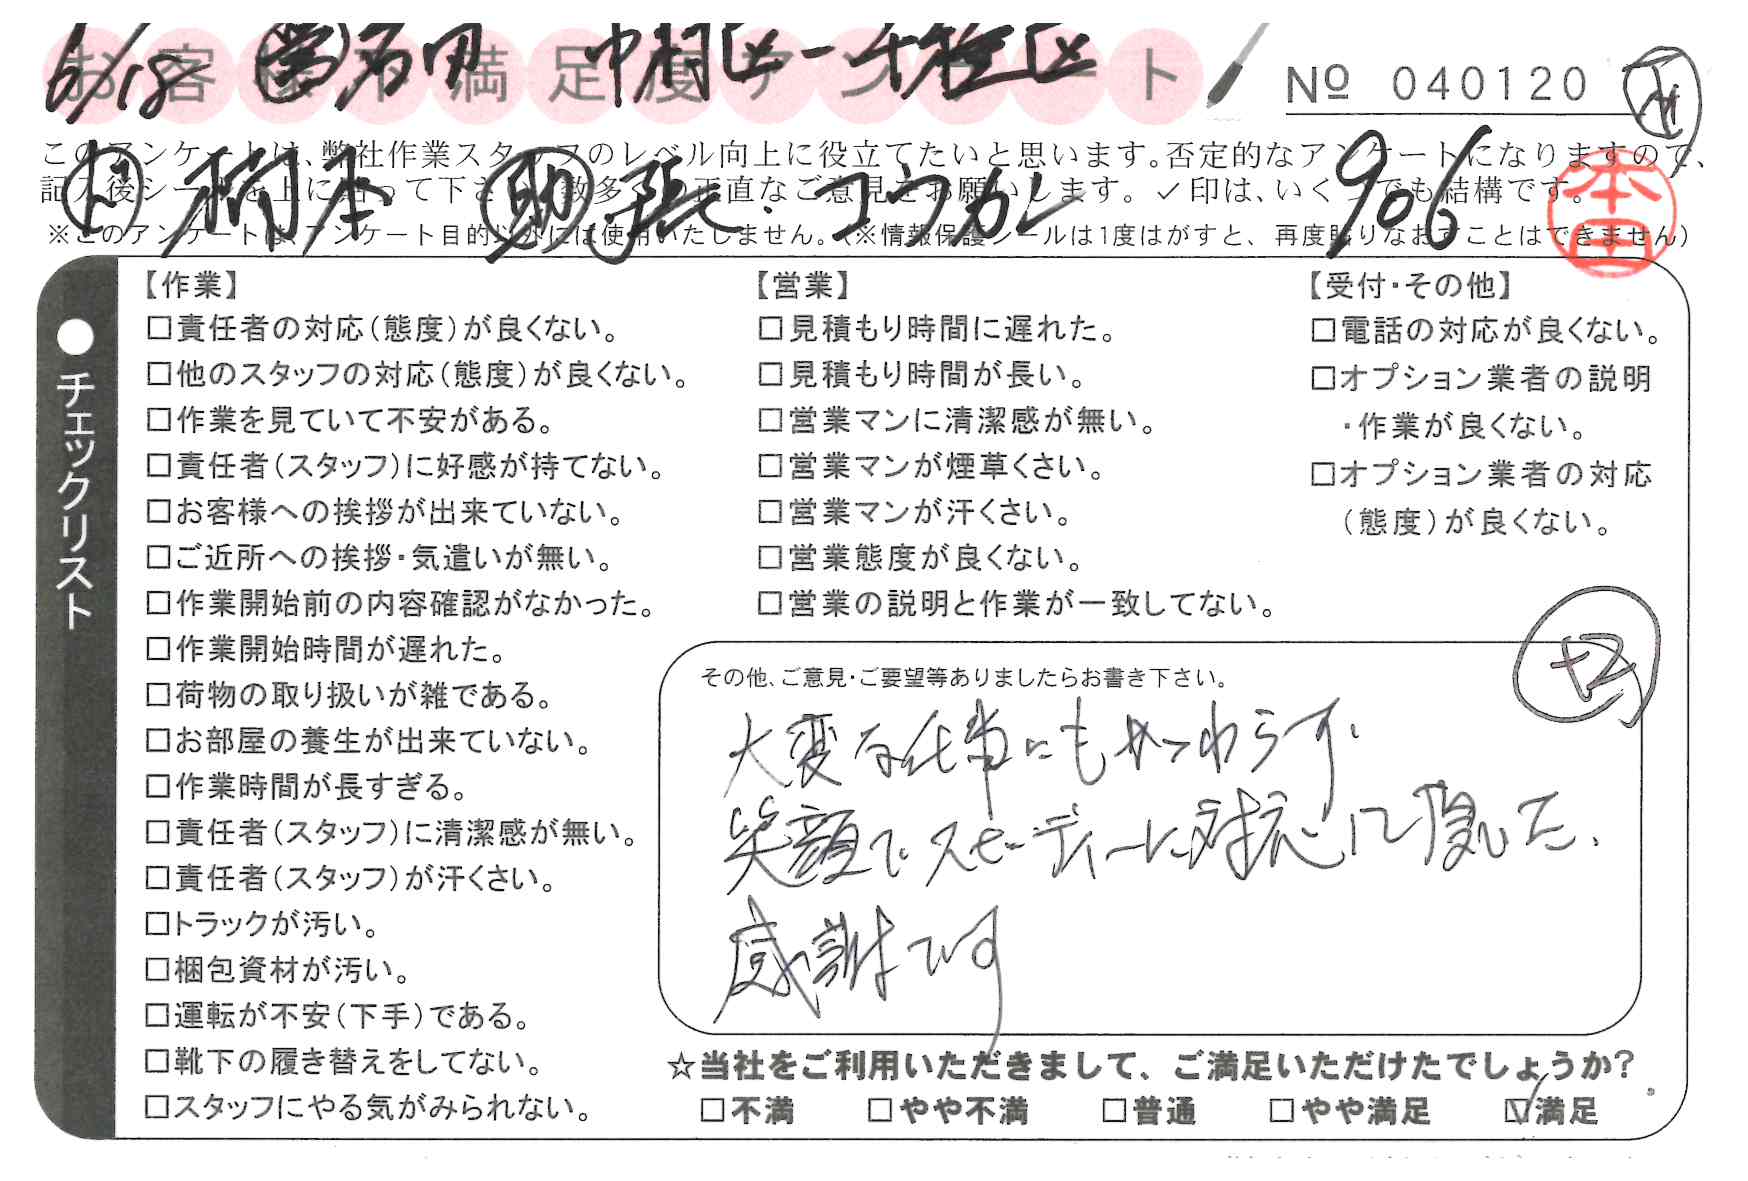 お客様不満足度アンケート
6/18 営 石田 中村区ー千種区
№ 040120
このアンケートは、弊社作業スタッフのレベル向上に役立てたいと思います。否定的なアンケートになりますので、
記入後シールを上に貼って下さい。数多くの正直なご意見をお願いします。✓印は、いくつでも結構です。
本 助 張・コウカレ 906
本田
※このアンケートは、アンケート目的以外には使用いたしません。(※情報保護シールは1度はがすと、再度貼りなおすことはできません)
●チェックリスト
【作業】
□責任者の対応(態度)が良くない。
□他のスタッフの対応(態度)が良くない。
□作業を見ていて不安がある。
□責任者(スタッフ)に好感が持てない。
□お客様への挨拶が出来ていない。
□ご近所への挨拶・気遣いが無い。
□作業開始前の内容確認がなかった。
□作業開始時間が遅れた。
□荷物の取り扱いが雑である。
□お部屋の養生が出来ていない。
□作業時間が長すぎる。
□責任者(スタッフ)に清潔感が無い。
□責任者(スタッフ)が汗くさい。
□トラックが汚い。
□梱包資材が汚い。
□運転が不安(下手)である。
□靴下の履き替えをしてない。
□スタッフにやる気がみられない。
【営業】
□見積もり時間に遅れた。
□見積もり時間が長い。
□営業マンに清潔感が無い。
□営業マンが煙草くさい。
□営業マンが汗くさい。
□営業態度が良くない。
□営業の説明と作業が一致してない。
【受付・その他】
□電話の対応が良くない。
□オプション業者の説明
・作業が良くない。
□オプション業者の対応
(態度)が良くない。
その他、ご意見・ご要望等ありましたらお書き下さい。
大変な仕事にもかかわらず、
笑顔でスピーディーに対応して頂いた。
感謝です
☆当社をご利用いただきまして、ご満足いただけたでしょうか?
□不満 □やや不満 □普通 □やや満足 ☑満足